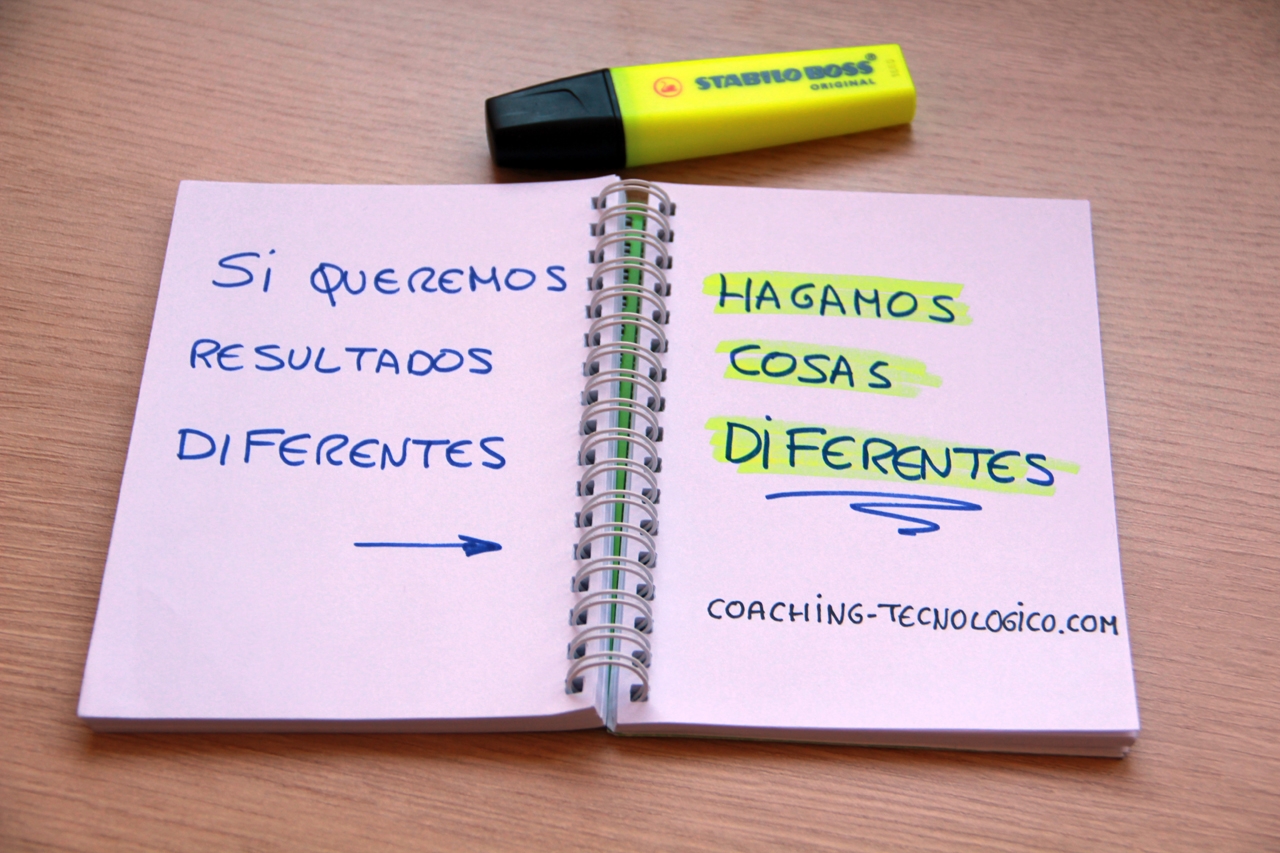 STABILO BOSS®
ORIGINAL
Si QUEREMOS
RESULTADOS
DIFERENTES
HAGAMOS
COSAS
DiFERENTES
COACHiNG-TECNOLOGiCO.COM